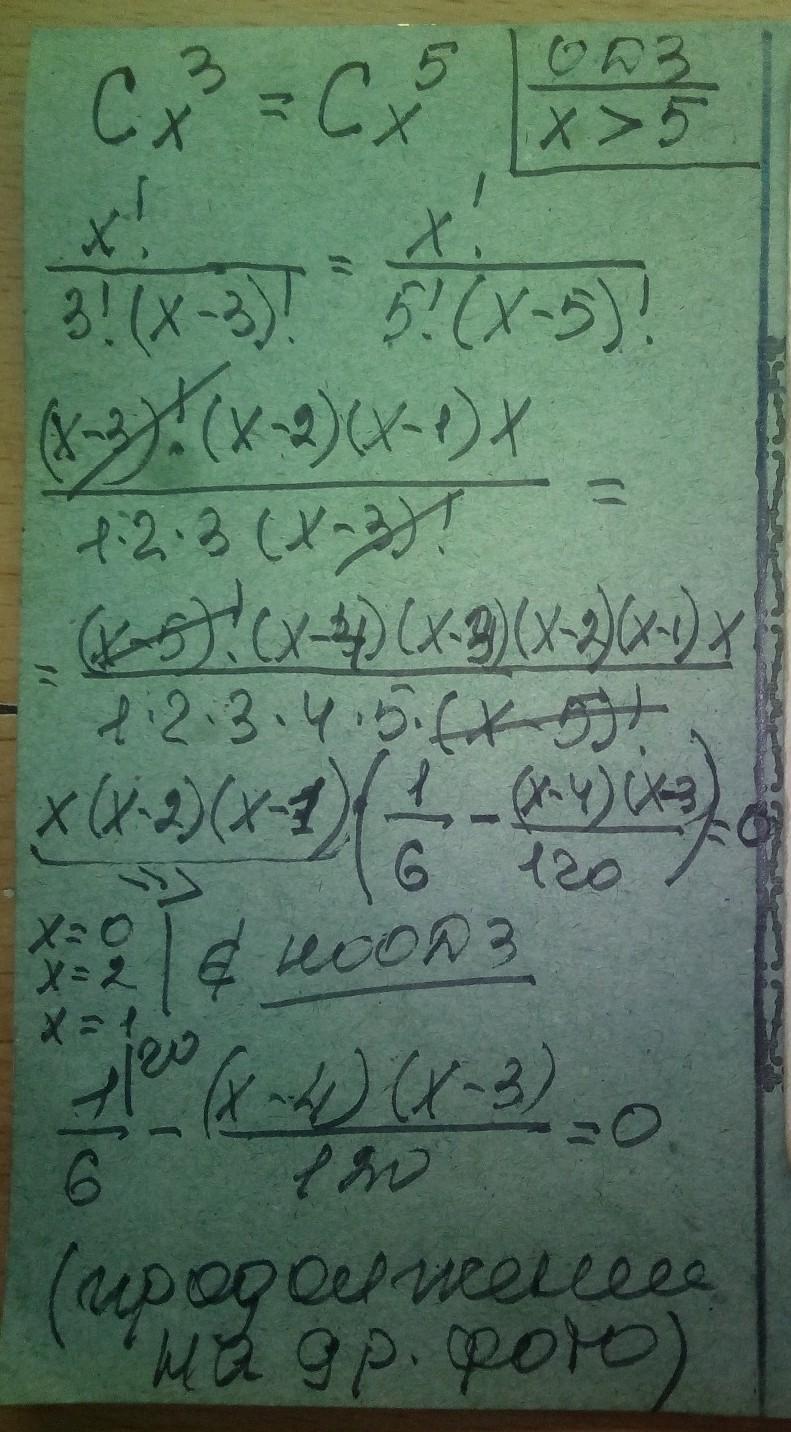 C_x^3 = C_x^5 ОДЗ x > 5
x! / (3!(x-3)!) = x! / (5!(x-5)!)
(x-3)!·(x-2)(x-1)x / (1·2·3(x-3)!) =
= (x-5)!·(x-4)(x-3)(x-2)(x-1)x / (1·2·3·4·5·(x-5)!)
x(x-2)(x-1)·(1/6 - (x-4)(x-3)/120) = 0
x=0
x=2 | ∉ по ОДЗ
x=1
1|20 / 6 - (x-4)(x-3)/120 = 0
(продолжение
на др. фото)